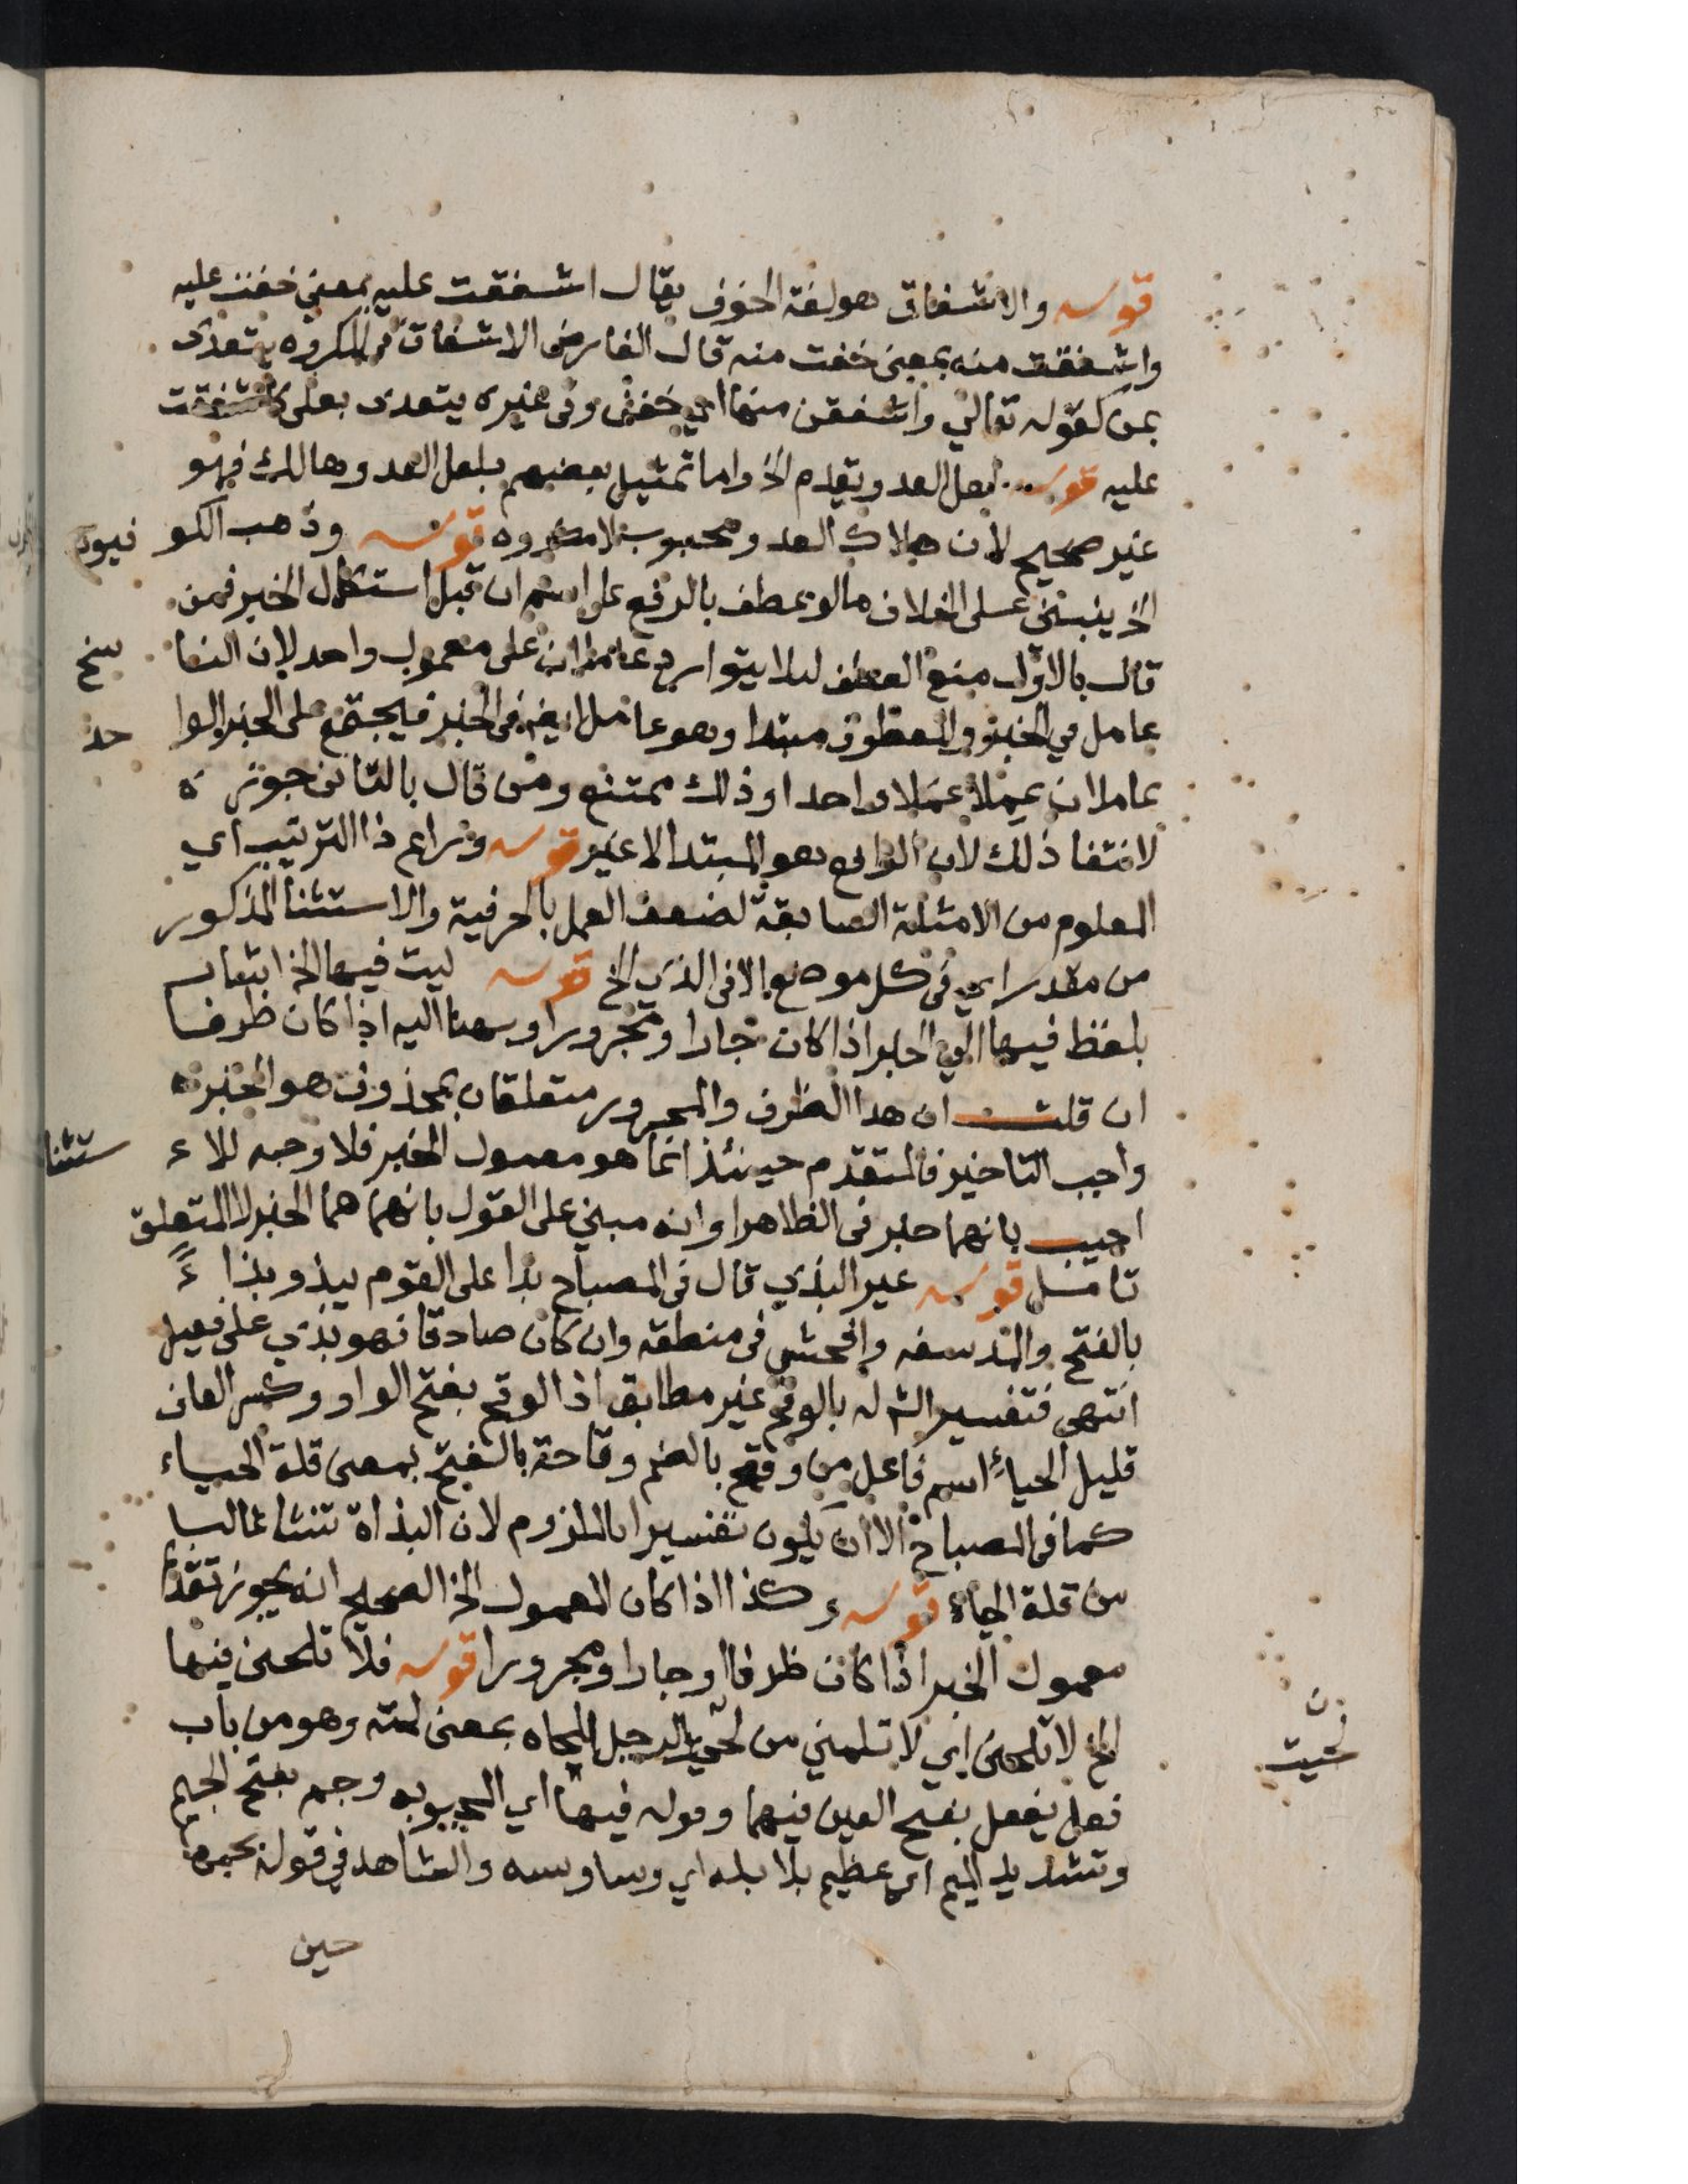 قوله والاشفاق هو لغة الخوف يقال اشفقت عليه بمعنى خفت عليه
واشفقت منه بمعنى خفت منه قال الفارضى الاشفاق فى المكروه يتعدى
بمن كقوله تعالي واشفقن منها اي خفن وفى غيره يتعدى بعلى كاشفقت
عليه قوله لعل العدو يقدم الخ واما تمثيل بعضهم بلعل العدو هالك فهو
غير صحيح لان هلاك العدو محبوب لا مكروه قوله وذهب الكو فيون
الخ ينبنى على الخلاف ما لو عطف بالرفع على اسم ان قبل استكمال الخبر فمن
قال بالاول منع العطف ليلا يتوارد عاملان على معمول واحد لان الناسخ
عامل في الخبر والمعطوف مبتدا وهو عامل ايضا فى الخبر فيجتمع على الخبر الوا حد
عاملان عملا عملا واحدا وذلك ممتنع ومن قال بالثانى جوزه
لانتفا ذلك لان الرافع هو المبتدا لا غير قوله وراع ذا الترتيب اي
المعلوم من الامثلة السابقة لضعف العمل بالحرفية والاستثنا المذكور
من مقدر اي فى كل موضع الا فى الذي الخ قوله ليت فيها الخ اشار
بلفظ فيها الي الخبر اذا كان جارا ومجرورا وبهنا اليه اذا كان ظرفا
ان قلت ان هدا الظرف والمجرور متعلقان بمحذوف هو الخبر
واجب التاخير فالمتقدم حينئذ انما هو معمول الخبر فلا وجه للا ستثنا
اجيب بانهما خبر فى الظاهر او انه مبني على القول بانهما هما الخبر لا المتعلق
تامل قوله غير البذي قال فى المصباح بذا على القوم يبذو بذاءً
بالفتح والمد سفه وافحش فى منطقه وان كان صادقا فهو بذي على فعيل
انتهى فتفسير الش له بالوقح غير مطابق اذ الوقح بفتح الواو وكسر القاف
قليل الحياء اسم فاعل من وقح بالضم وقاحة بالفتح بمعنى قلة الحياء
كما فى المصباح الا ان يكون تفسيرا بالملزوم لان البذاة تنشا غالبا
من قلة الحياء قوله وكذا اذا كان المعمول الخ الصحيح انه يجوز تقدم
معمول الخبر اذا كان ظرفا او جارا ومجرورا قوله فلا تلحنى فيها
الخ لا تلحنى اي لا تلمني من لحيت الرجل الحاه بمعنى لمته وهو من باب
فعل يفعل بفتح العين فيهما وقوله فيها اي المحبوبه وجم بفتح الجيم
وتشديد الميم اي عظيم بلا بله اي وساوسه والشاهد في قوله بحبها
حين